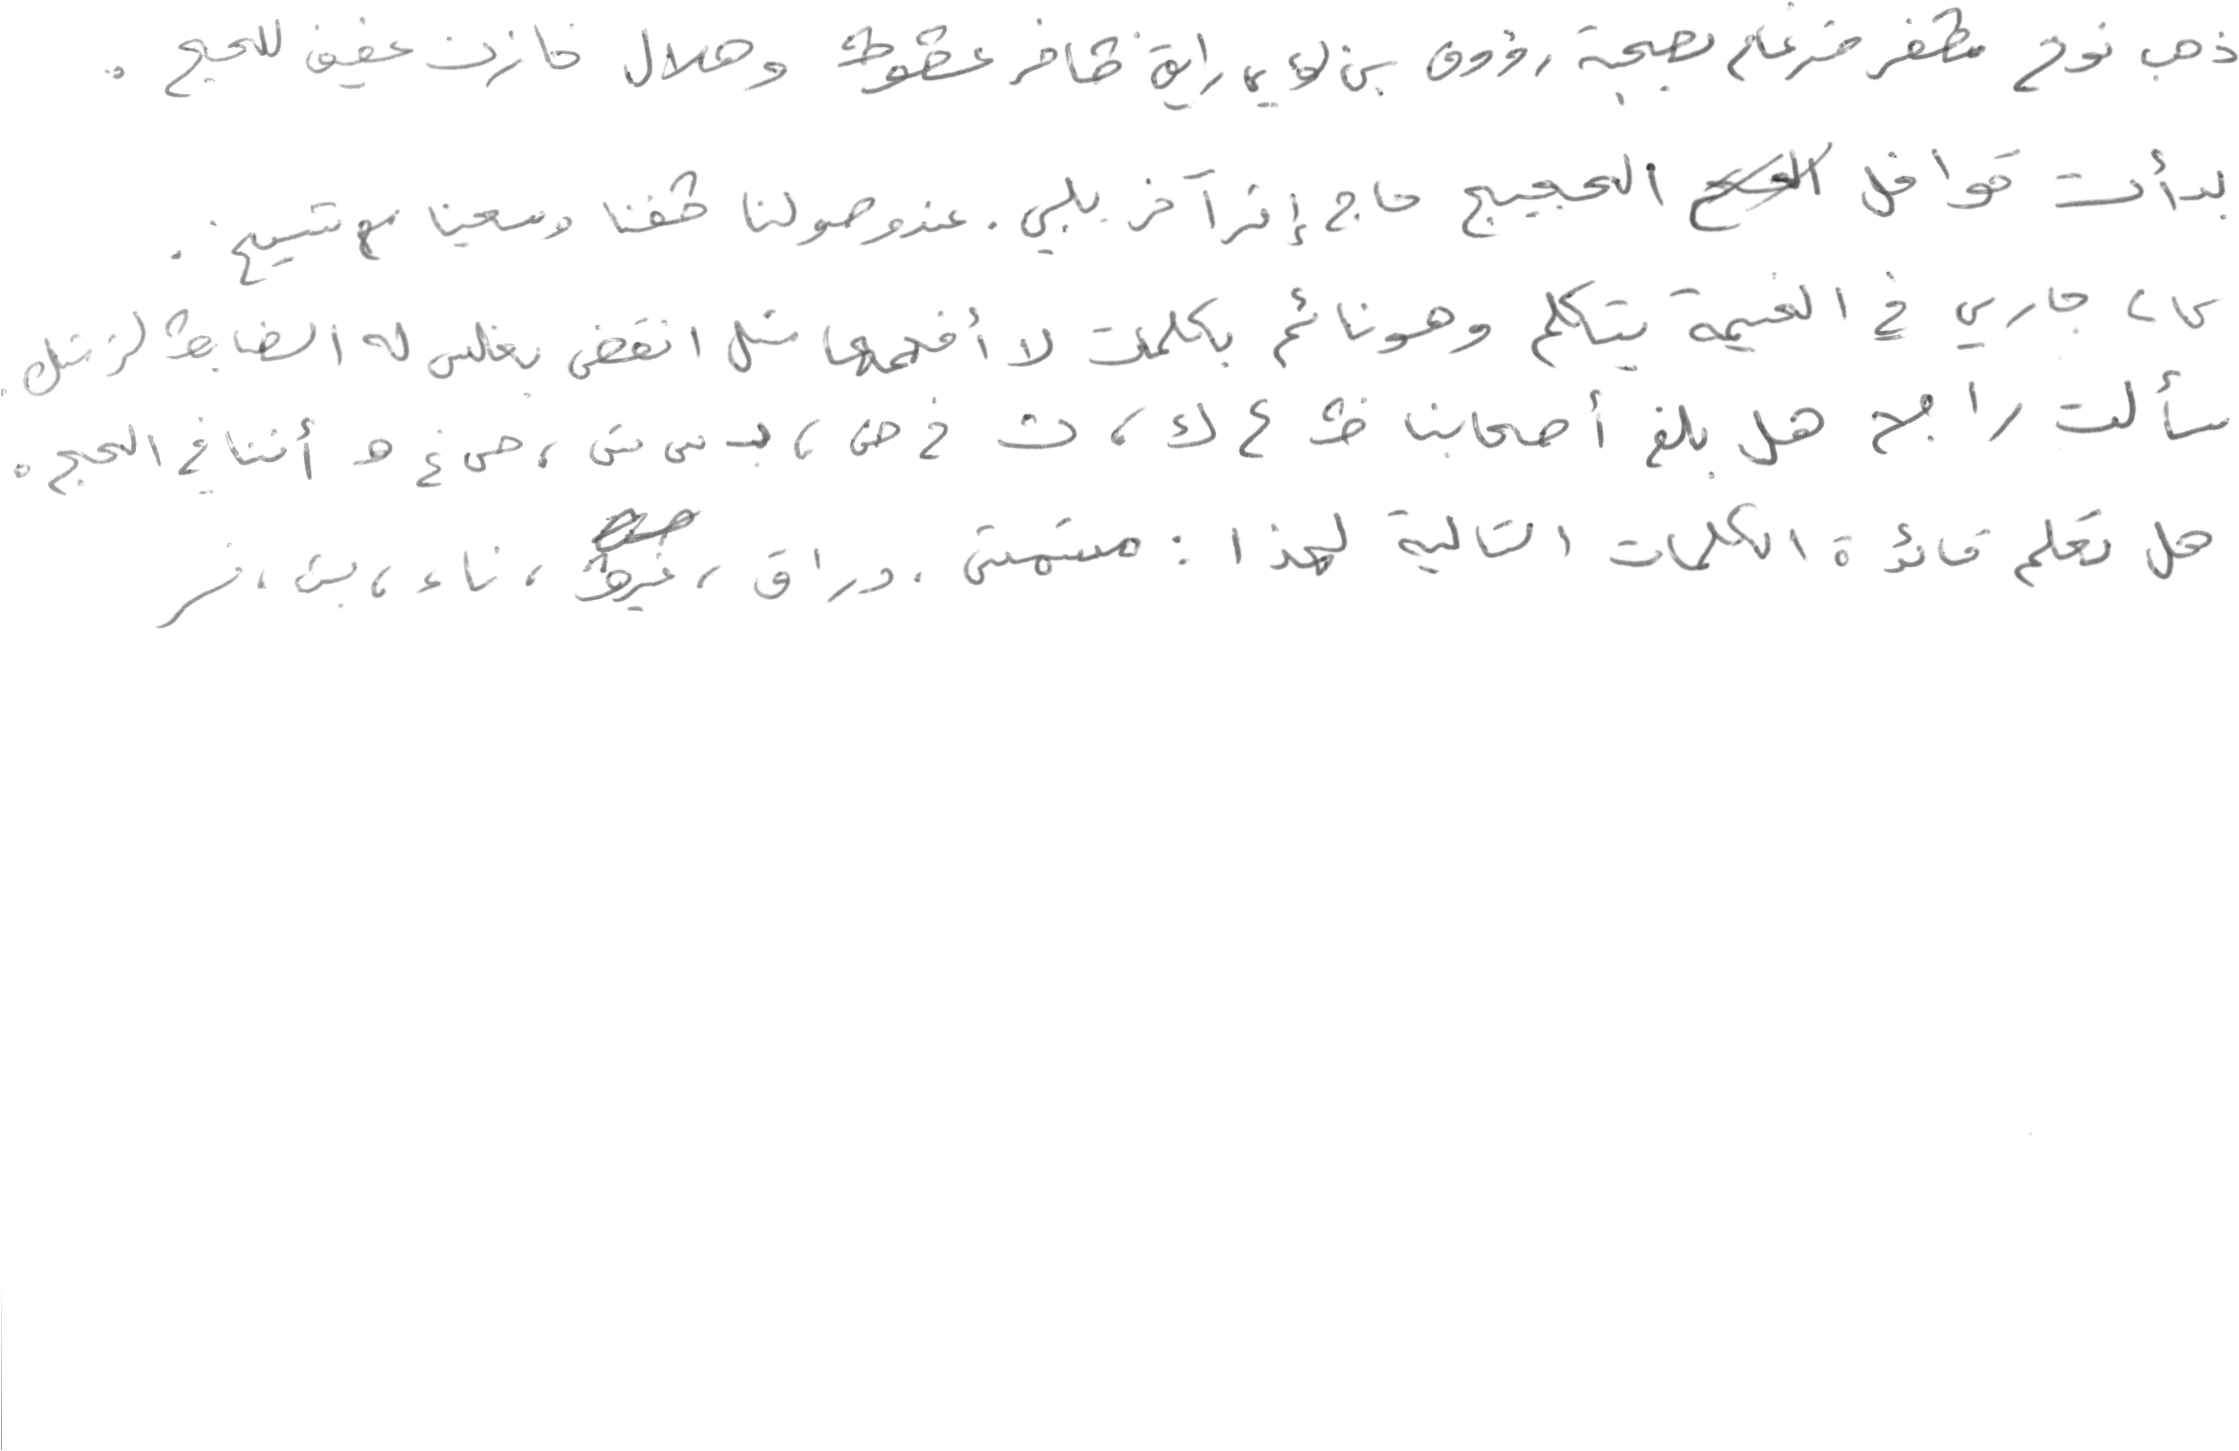 ذهب نوح مظفر ضرغام بصحبة رؤوف بن لؤي رايق ظافر عظوظ وهلال خازن عفيف للحج .
بدأت قوافل الحجيج حاج إثر آخر يلبي . عند وصولنا طفنا وسعينا مع شيخ .
كان جاري في الخيمة يتكلم وهو نائم بكلمات لا أفهمها مثل انقض بغلس له الضابط لز شك .
سألت راجح هل بلغ أصحابنا ظ ع ك ، ث خ ض ، ب س ش ، ص غ ه أننا في الحج .
هل تعلم قائدة الكلمات التالية لهذا : مشمش . دراق ، غيظ ، ناء ، بث ، نر